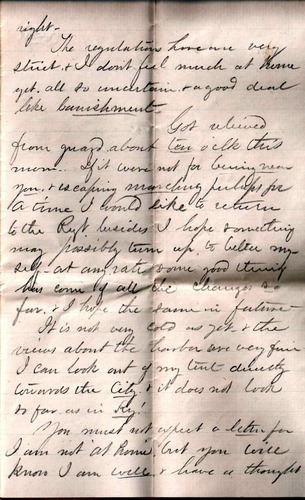 right -
The regulations here are very
strict & I don't feel much at home
yet. all so uncertain & a good deal
like banishment.
Got relieved
from guard about ten o'clk this
morn. If it were not for being near
you, & escaping marching perhaps for
a time I would like to return
to the Regt. besides I hope something
may possibly turn up to better my-
self - at any rate some good thing
has come of all the changes so
far, & I hope the same in future
It is not very cold as yet & the
views about the harbor are very fine
I can look out of my tent directly
towards the City & it does not look
so far as in Ky.
You must not expect a letter for
I am not at home, but you will
know I am well, & have a thought